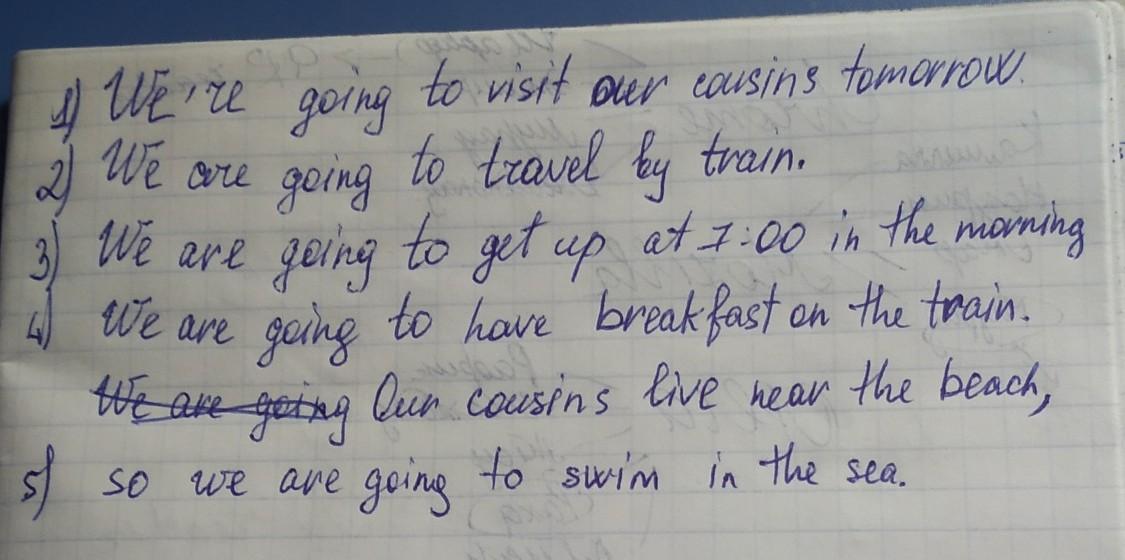 1) We're going to visit our cousins tomorrow.
2) We are going to travel by train.
3) We are going to get up at 7:00 in the morning
4) We are going to have breakfast on the train.
We are going Our cousins live near the beach,
5) so we are going to swim in the sea.